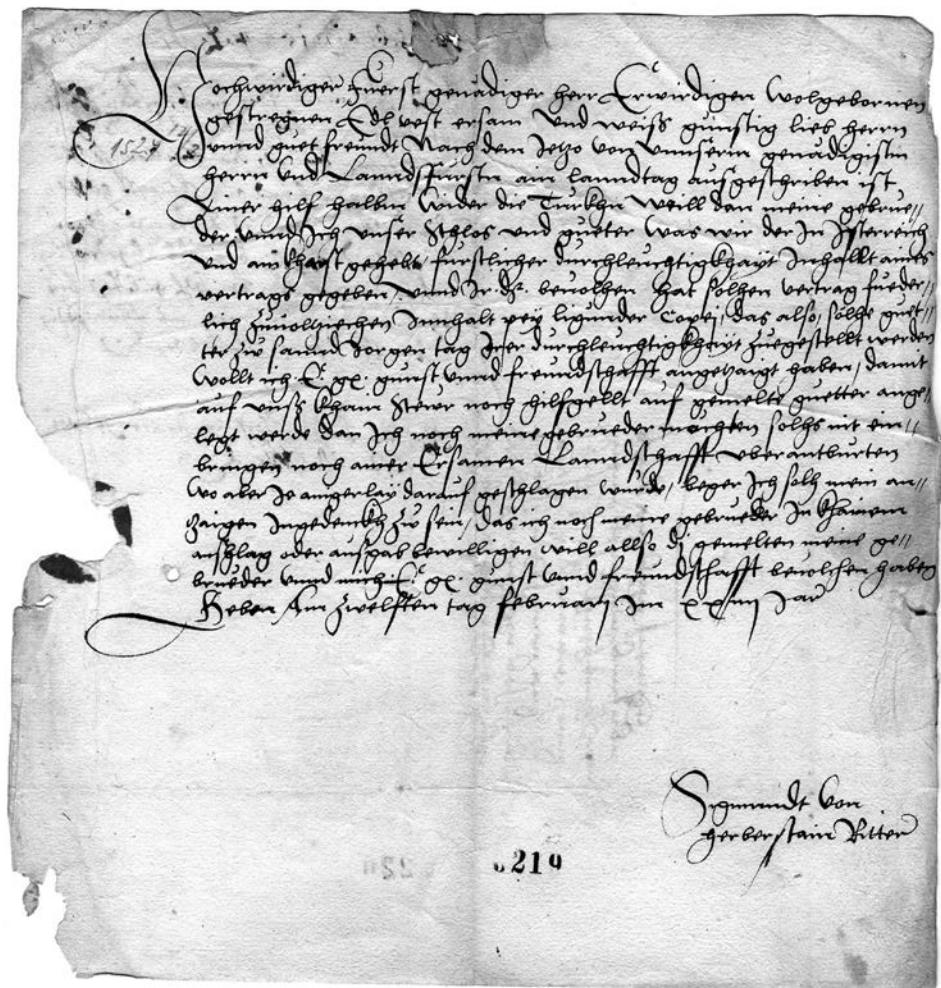 Hochwirdiger Fuerst genadiger herr Erwirdigen wolgebornen
gestrengen Edl vest ersam und weiss gunstig lieb herrn
1524 12/2
unnd guet freundt Nach dem Jetzo von unnserm genadigistn
herrn und Lanndsfurstn ain lanndtag ausgeschriben ist
Ainer hilf halbm wider die Turkhn weill dan meine gebrue//
der unnd Ich unser Schlos und gueter was wir der In Isterreich
und am gehebt, furstlicher durchleuchtigkhayt Inhallt aines
vertrags gegeben, unnd Ir beuolhen hat solhen vertrag fueder//
lich zuuolziechen Innhalt pey ligunder Copej, das also, solhe guet//
ter zw sannd Jorgen tag Irer durchleuchtigkhayt zuegestellt werden
wollt ich E. g. gunst unnd freundschafft angezaigt haben, damit
auf unss khain Stewr noch hilfgellt auf gemelte guetter ange//
legt werde dan Ich noch meine gebrueder mochten solhs nit ein//
bringen noch ainer Ersamen Lanndschafft uberantburten
wo aber Je ainigerlay darauf geschlagen wurde, beger Ich solh mein an//
zaigen Ingedenckh zw sein, das ich noch meine gebrueder In khainem
anschlag oder ausgab bewilligen will allso di gemelten meine ge//
brueder unnd mich E. g. gunst unnd freundschafft beuolchen haben
Geben am zwelften tag februarj Im xxiiij Jar
Sigmundt von
herberstain Ritter
219